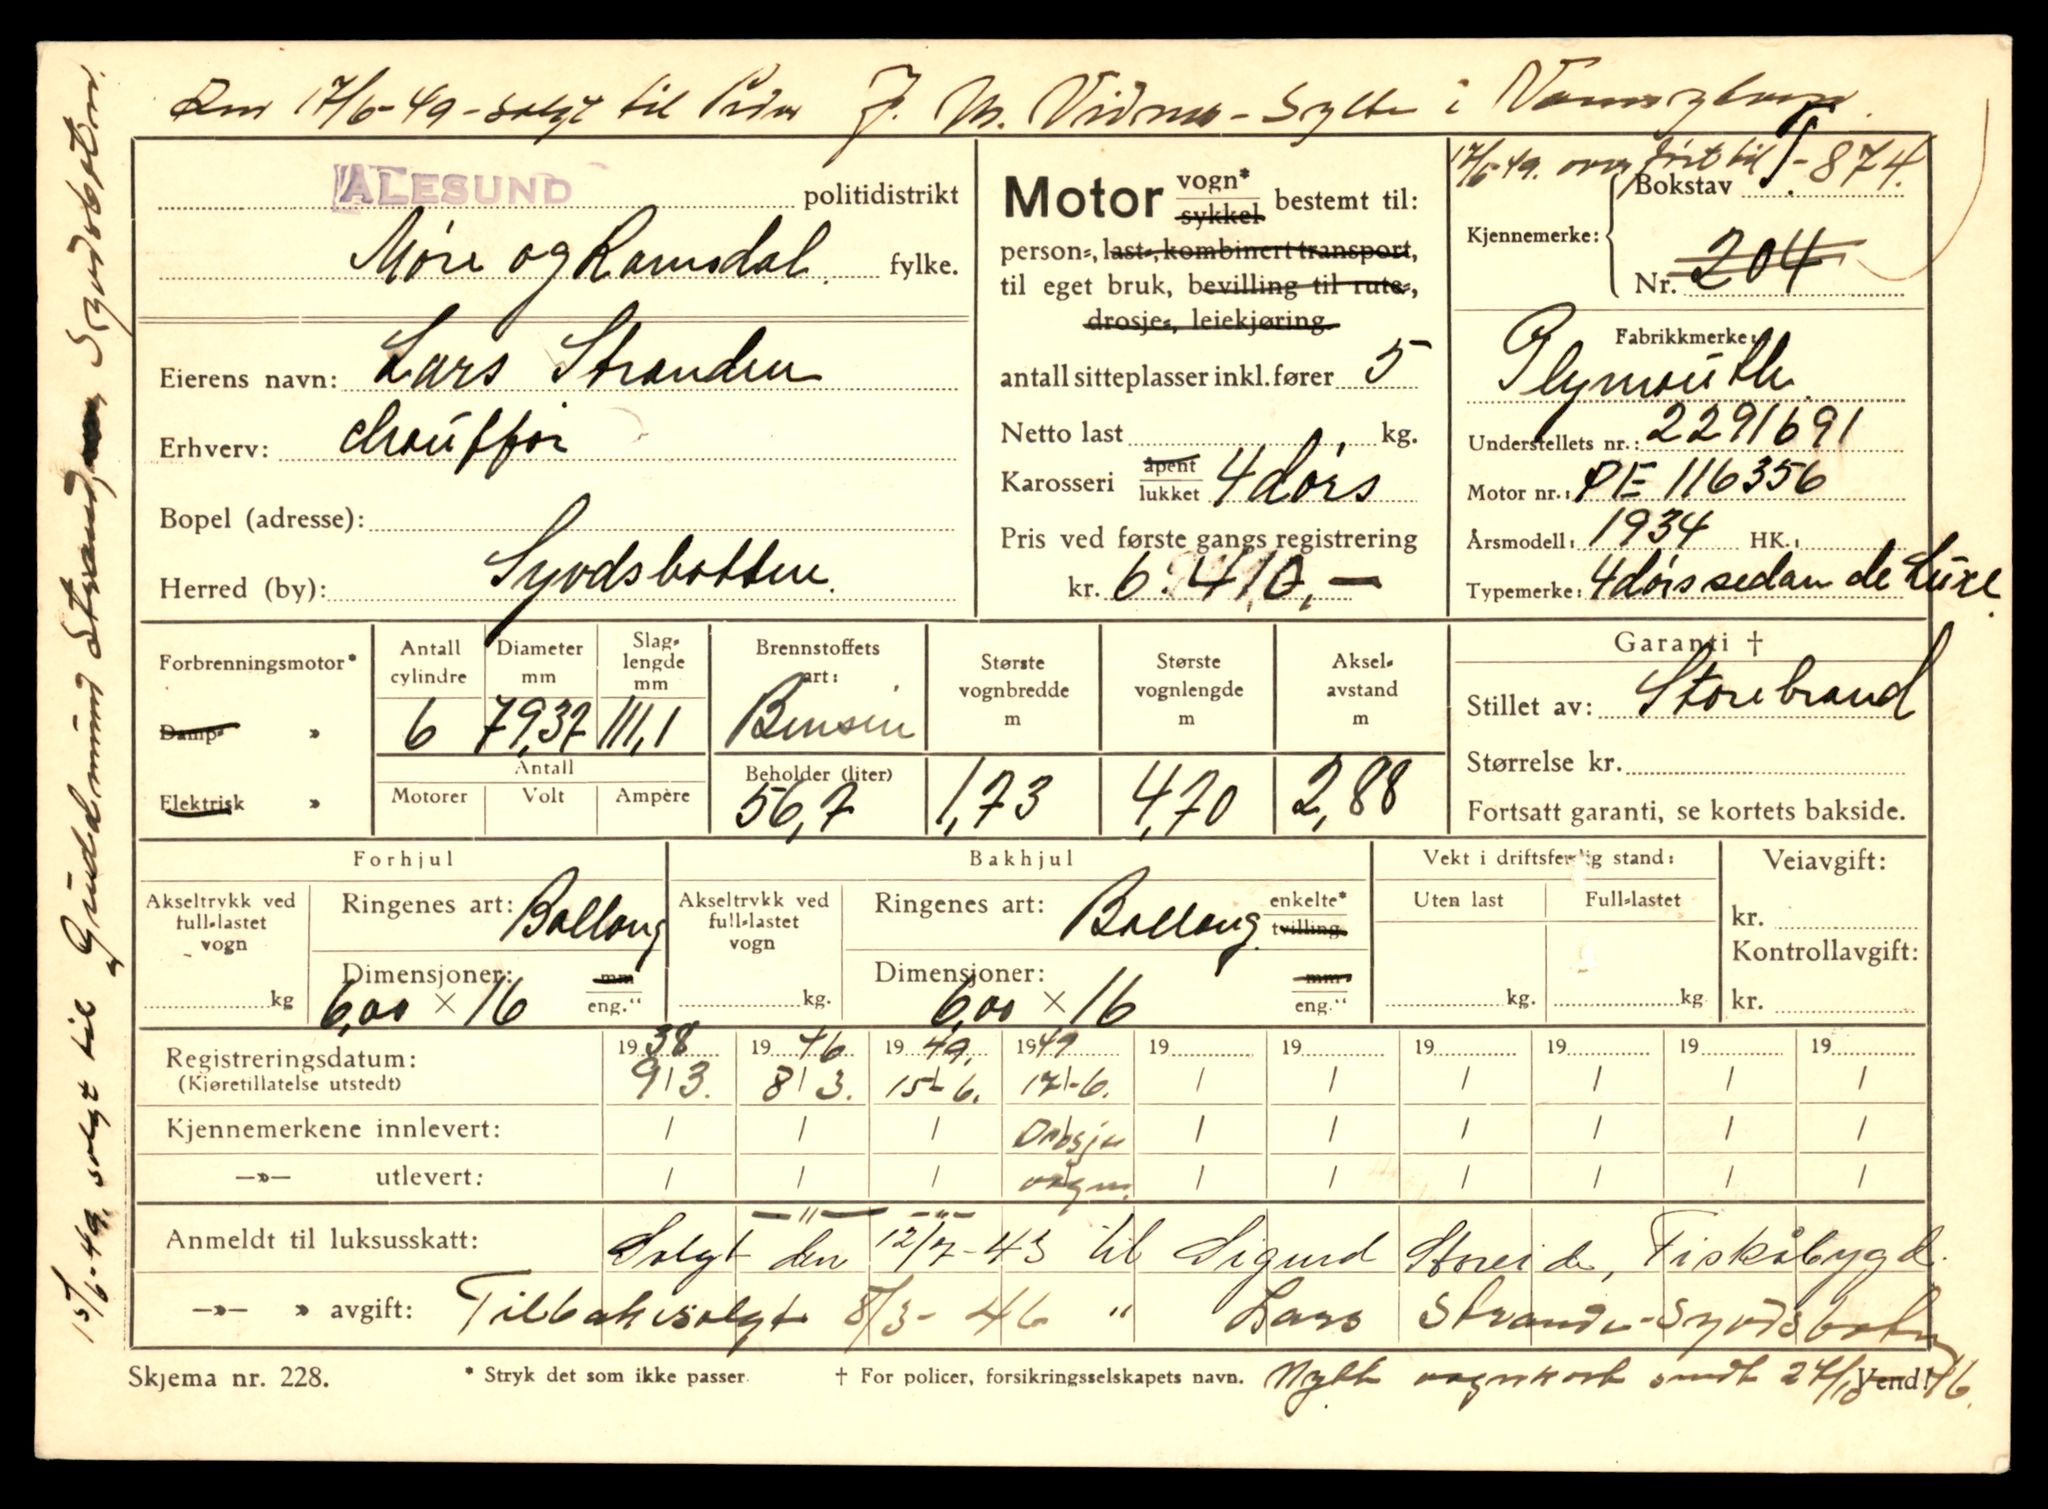 Den 17/6-49-solgt til J. M. Vidnes-Sylte i Vannylven.
15/6-49. solgt til Gudmund Strand, Syvdsbotn.
ALESUND politidistrikt
Møre og Romsdal. fylke.
Eierens navn: Lars Stranden
Erhverv: chauffør
Bopel (adresse):
Herred (by): Syvdsbotten.
Motor vogn* sykkel bestemt til:
person-, last-, kombinert transport,
til eget bruk, bevilling til rute-,
drosje-, leiekjøring.
antall sitteplasser inkl. fører 5
Netto last kg.
Karosseri åpent lukket 4 dørs
Pris ved første gangs registrering
kr. 6.410,-
17/6-49. overført til T-874.
Kjennemerke: Bokstav T
Nr. 204
Fabrikkmerke: Plymouth.
Understellets nr.: 2291691
Motor nr.: PE 116356
Årsmodell: 1934 HK.:
Typemerke: 4dørs sedan de Luxe.
Forbrenningsmotor*
Damp- »
Elektrisk »
Antall cylindre 6
Diameter mm 79,37
Slag-lengde mm 111,1
Antall
Motorer Volt Ampère
Brennstoffets art: Bensin
Beholder (liter) 56,7
Største vognbredde m 1,73
Største vognlengde m 4,70
Aksel-avstand m 2,88
Garanti †
Stillet av: Storebrand
Størrelse kr.
Fortsatt garanti, se kortets bakside.
Forhjul
Akseltrykk ved full-lastet vogn kg
Ringenes art: Ballong
Dimensjoner: mm
6,00 × 16 eng."
Bakhjul
Akseltrykk ved full-lastet vogn kg.
Ringenes art: Ballong. enkelte* tvilling.
Dimensjoner: mm
6,00 × 16 eng."
Vekt i driftsferdig stand:
Uten last kg. Full-lastet kg
Veiavgift:
kr.
Kontrollavgift:
kr.
Registreringsdatum: 1938 1946 1949. 1949 19 19 19 19 19 19
(Kjøretillatelse utstedt) 9/3. 8/3. 15/-6. 17/-6. / / / / / /
Kjennemerkene innlevert: / / / Drosje / / / / / /
—»— utlevert: / / / vogn. / / / / / /
Anmeldt til luksusskatt: Solgt den 12/7-43 til Sigurd Storeide, Fiskåbygd.
—»— » avgift: Tilbakesolgt 8/3-46 " Lars Strande-Syvdsbotn
Skjema nr. 228. * Stryk det som ikke passer. † For policer, forsikringsselskapets navn. Nytt vognkort sendt 24/10-46. Vend!